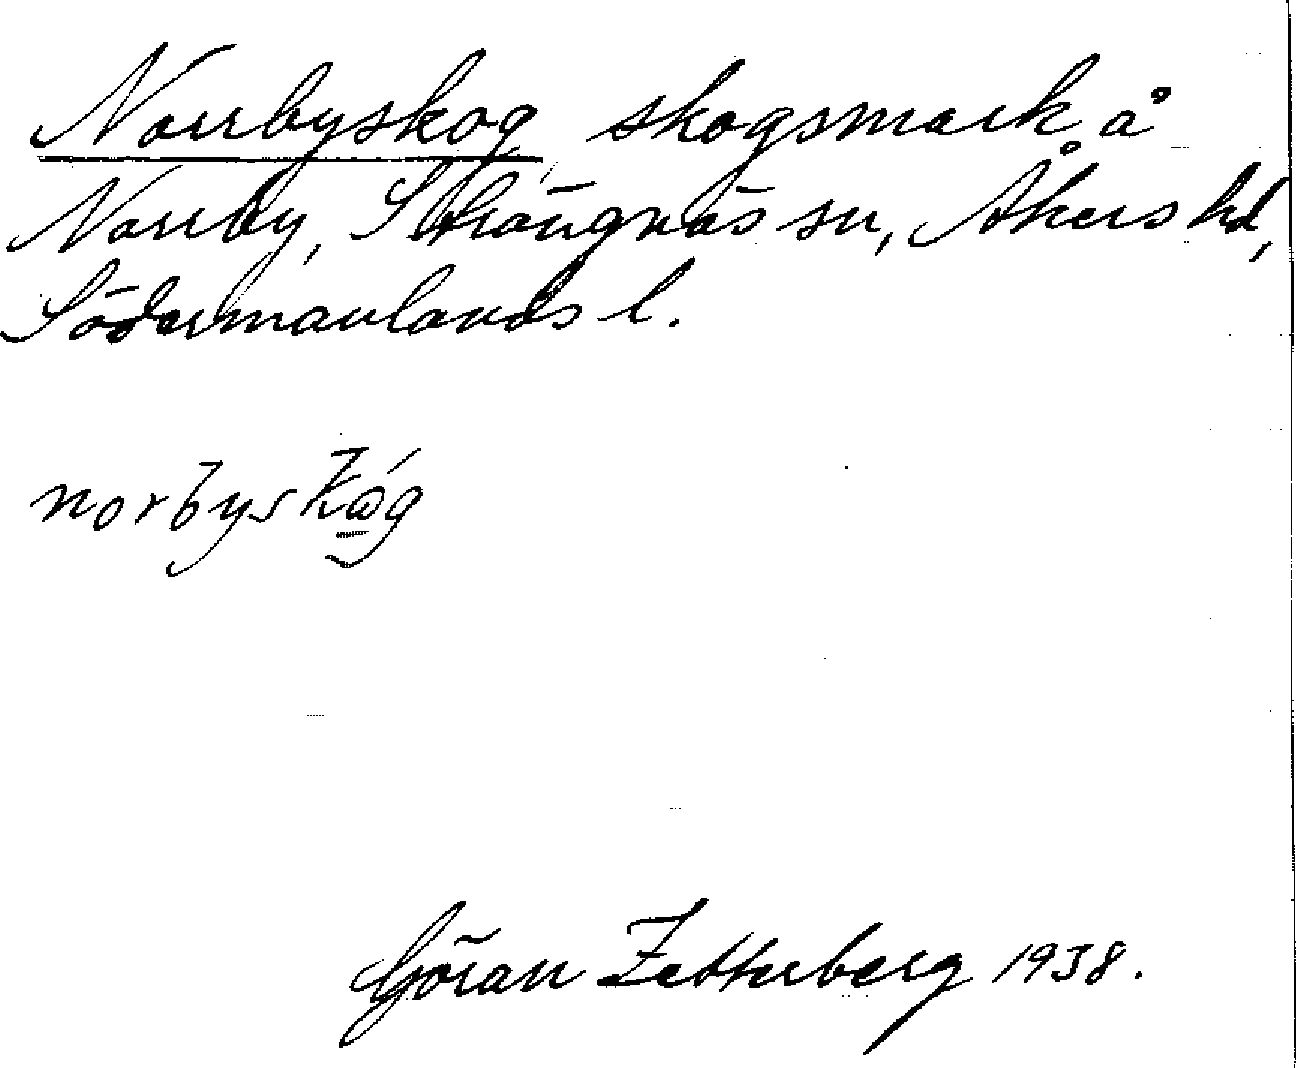 Norrbyskog, skogsmark å
Norrby, Strängnäs sn, Åkers hd,
Södermanlands l.
norbyskåg
Göran Zetterberg 1938.